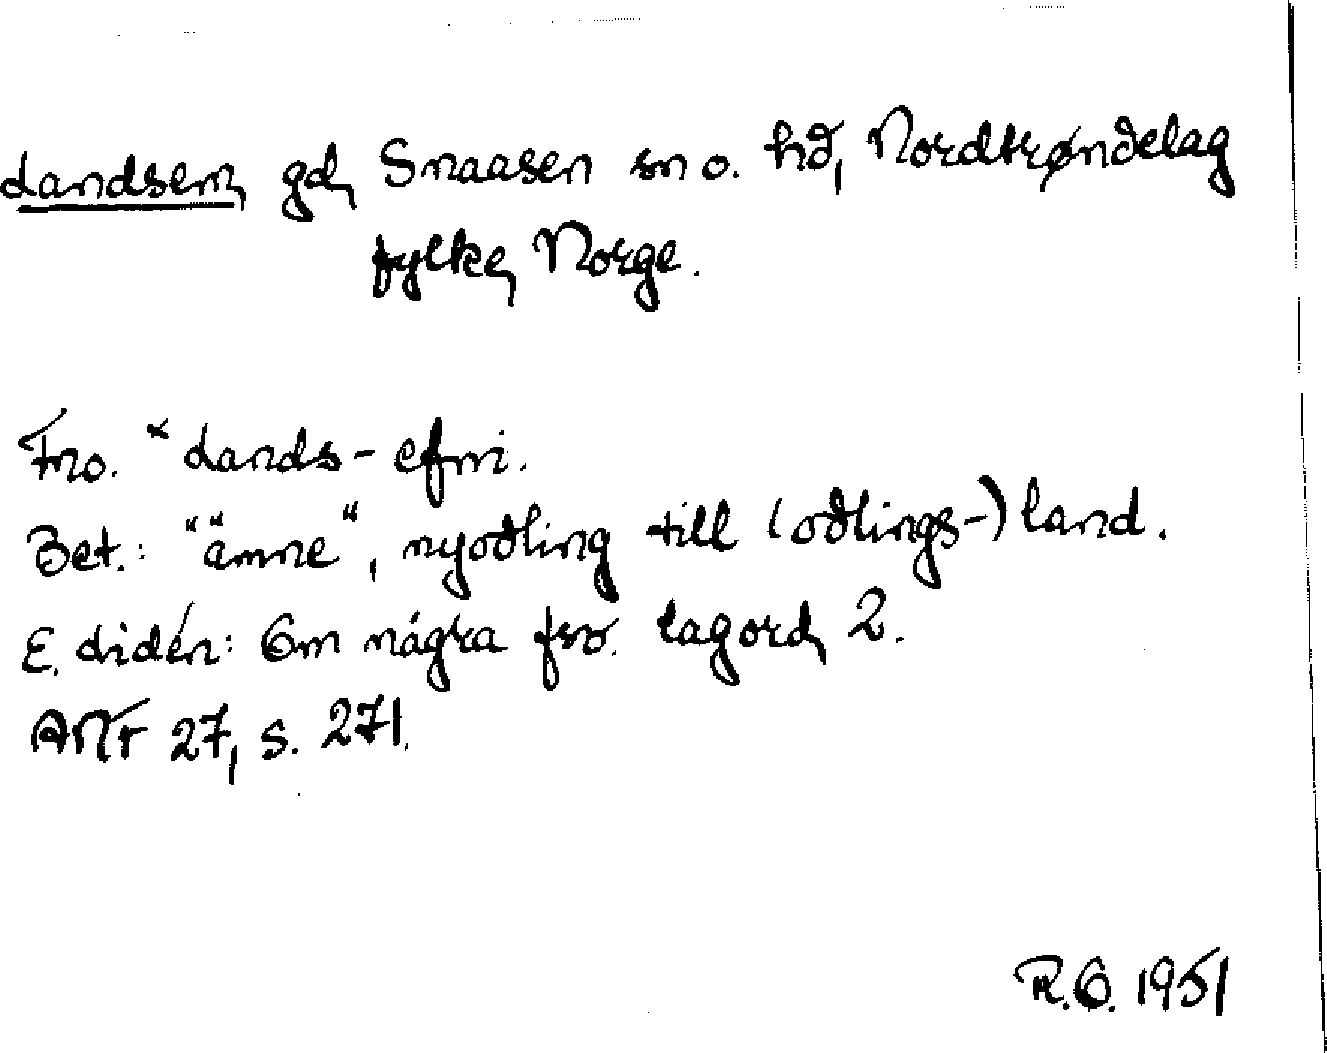 Landsem, gd, Snaasen sn o. hd, Nordtrøndelag
fylke, Norge.
Fno. *Lands-efni.
Bet.: "ämne", nyodling till (odlings-)land.
E. Lidén: Om några fsv. lagord, 2.
ANF 27, s. 271.
R.O. 1951